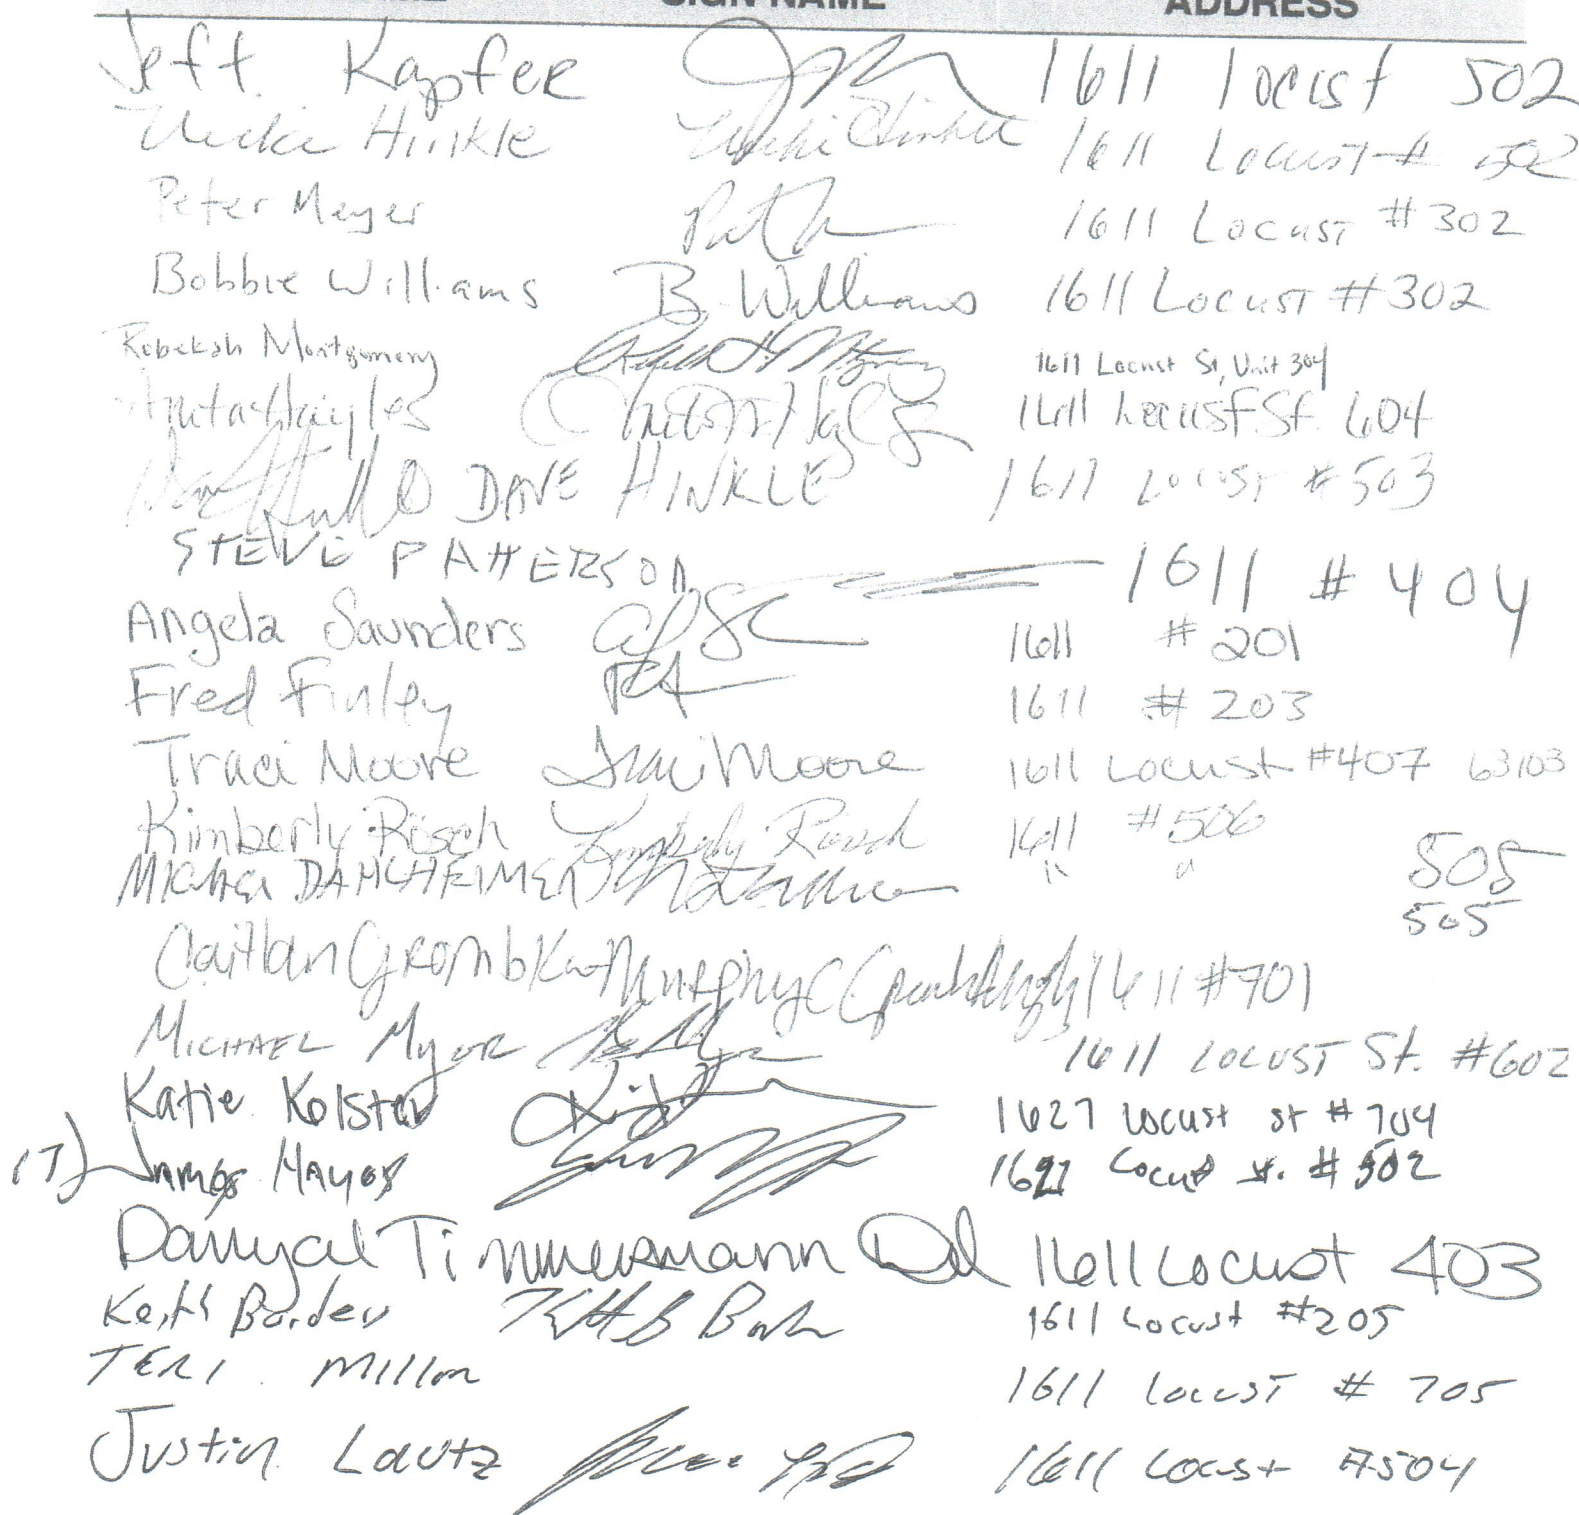 SIGN NAME ADDRESS
Jeff Kapfer 1611 locust 502
Vickie Hinkle Vickie Hinkle 1611 Locust # 502
Peter Meyer 1611 Locust #302
Bobbie Williams B. Williams 1611 Locust #302
Rebekah Montgomery 1611 Locust St, Unit 304
1611 Locust St. 604
DAVE HINKLE 1611 Locust #503
STEVE PATTERSON 1611 #404
Angela Saunders 1611 #201
Fred Finley 1611 #203
Traci Moore Traci Moore 1611 Locust #407 63103
Kimberly Rösch Kimberly Rösch 1611 #506
505
" "
505
Caitlan 1611 #701
MICHAEL 1611 LOCUST St. #602
Katie Kolster 1627 Locust st #704
17) James Mayes 1627 Locust St. #502
Danyal Timmermann 1611 Locust 403
Keith Borden 1611 Locust #205
TERI Miller 1611 Locust # 705
Justin Lautz 1611 Locust #504